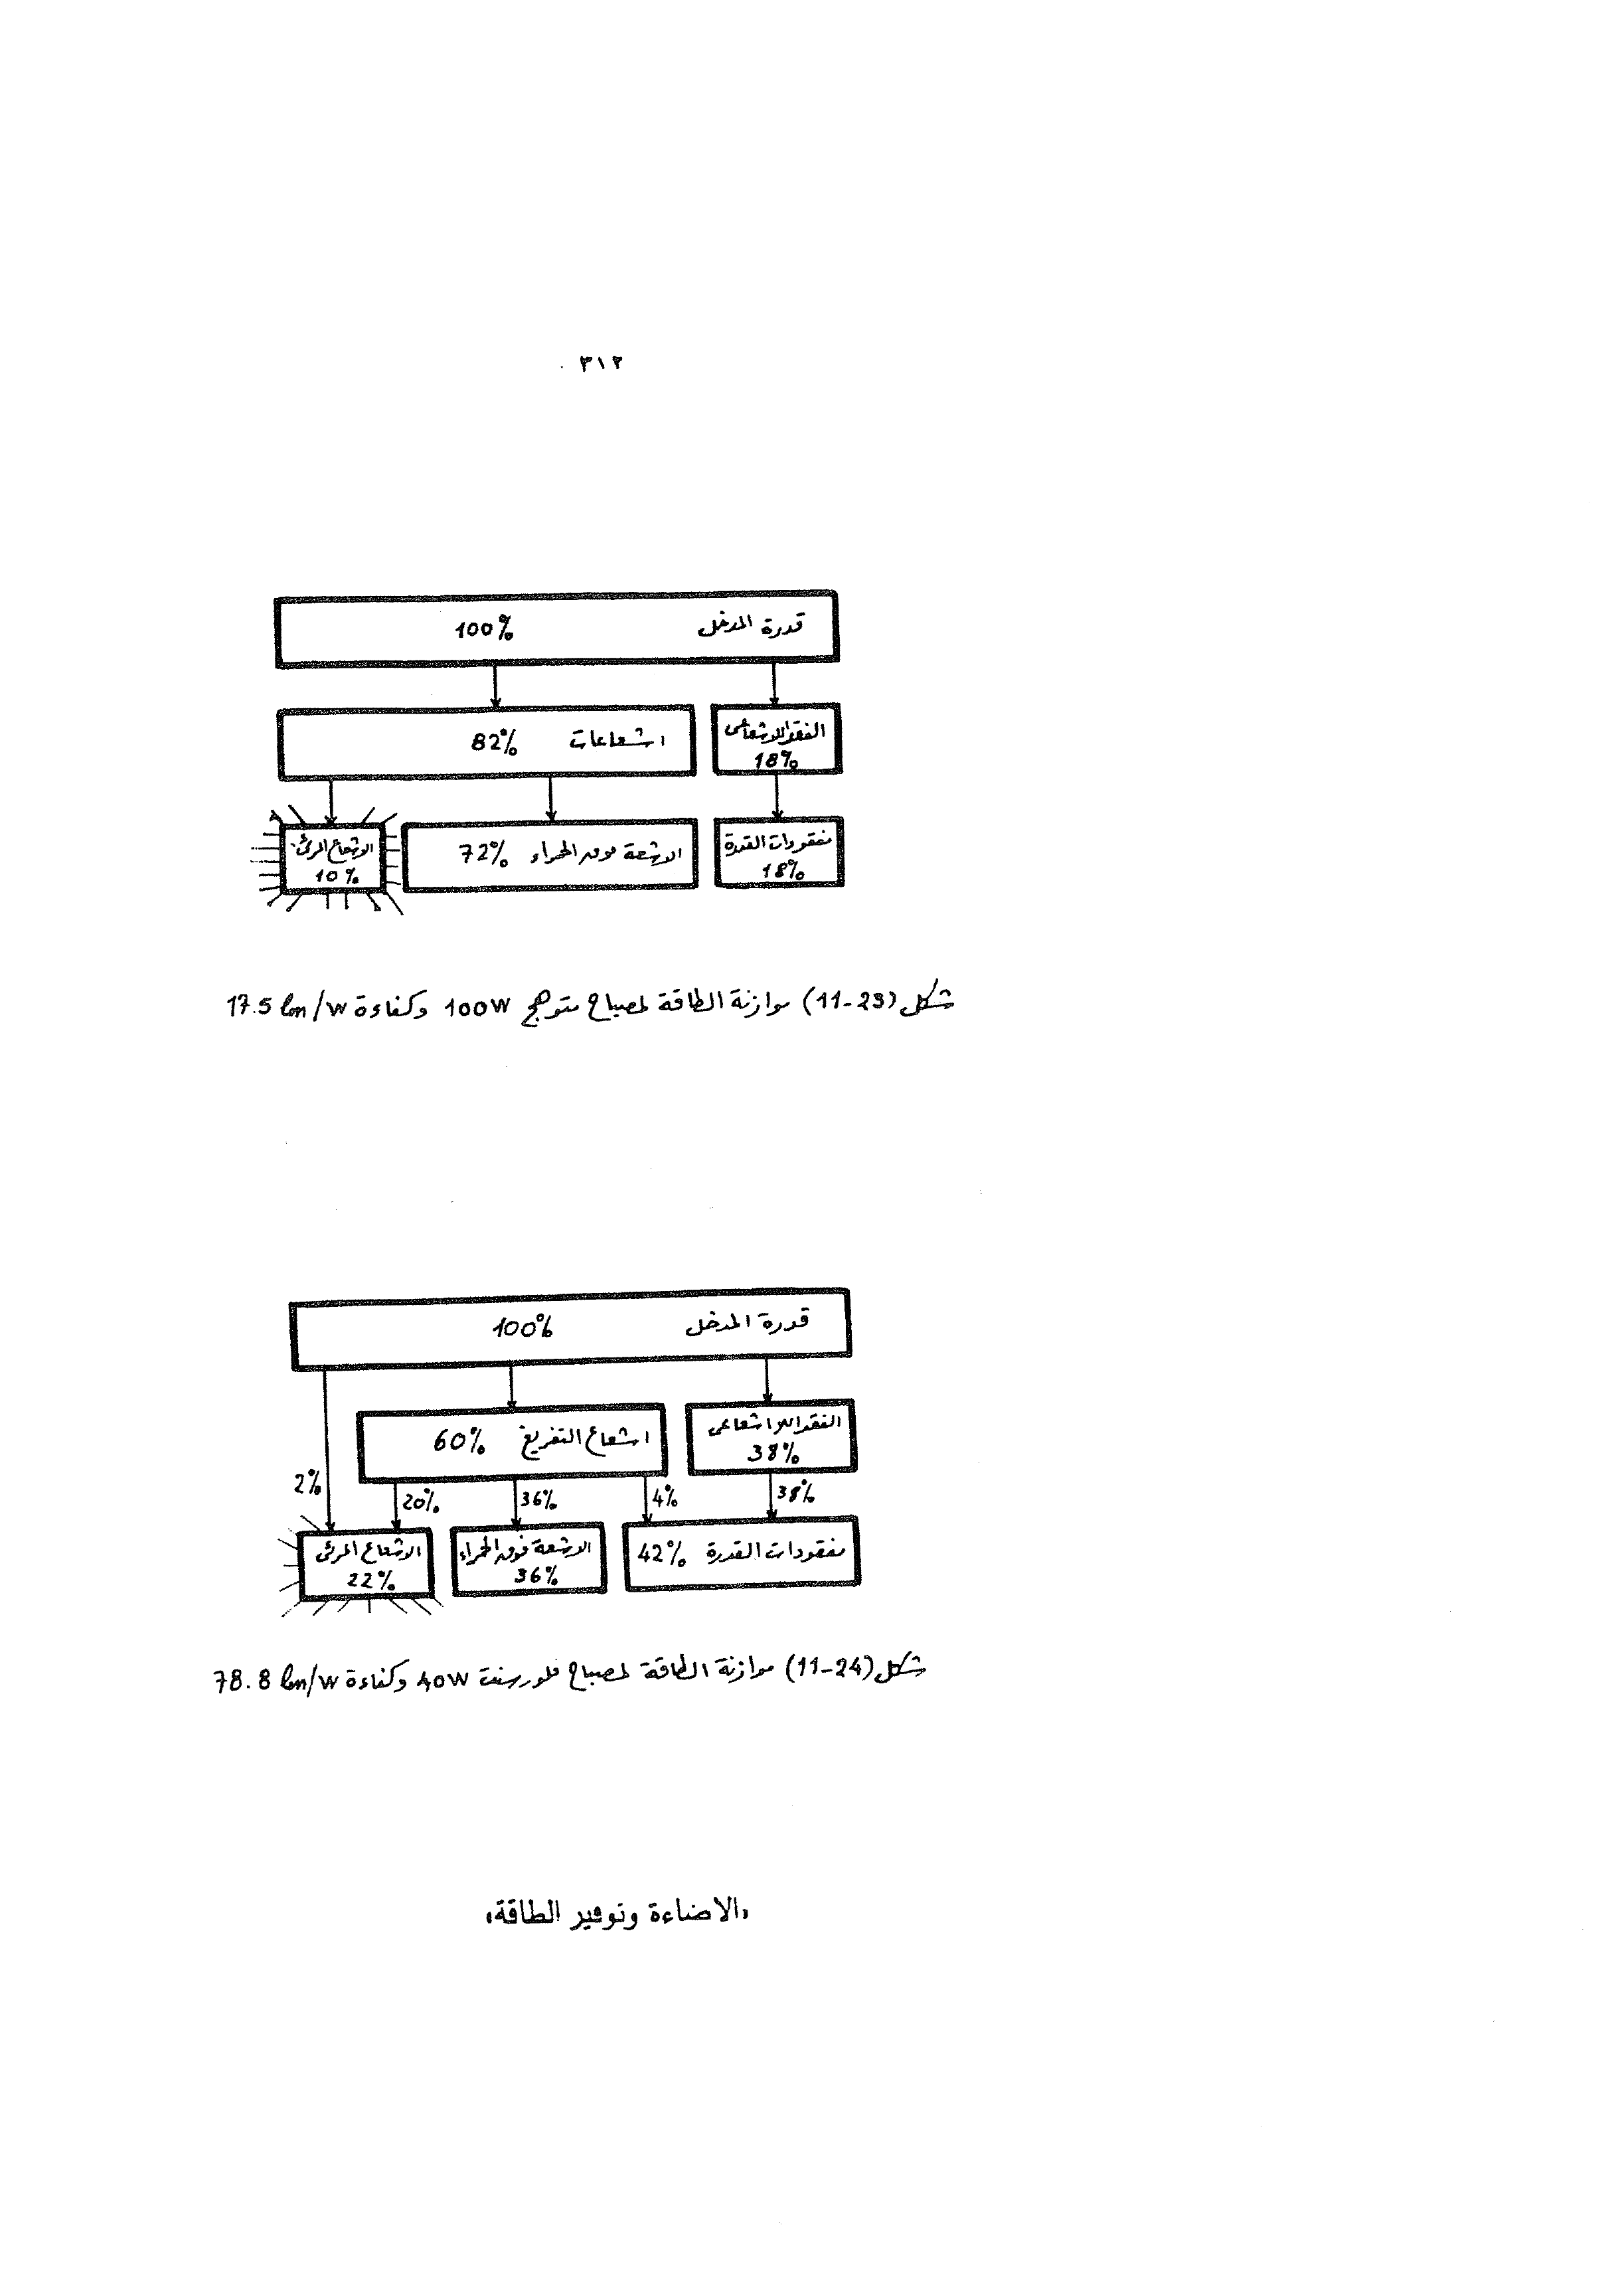 ٣١٢
قدرة المدخل 100%
اشعاعات 82%
الفقد اللاشعاعي
18%
الاشعاع المرئي
10%
الاشعة فوق الحمراء 72%
مفقودات القدرة
18%
شكل (11-23) موازنة الطاقة لمصباح متوهج 100W وكفاءة 17.5 lm/W
قدرة المدخل 100%
اشعاع التفريغ 60%
الفقد اللااشعاعي
38%
2%
20%
36%
4%
38%
الاشعاع المرئي
22%
الاشعة فوق الحمراء
36%
مفقودات القدرة 42%
شكل (11-24) موازنة الطاقة لمصباح فلورسنت 40W وكفاءة 78.8 lm/W
«الاضاءة وتوفير الطاقة»